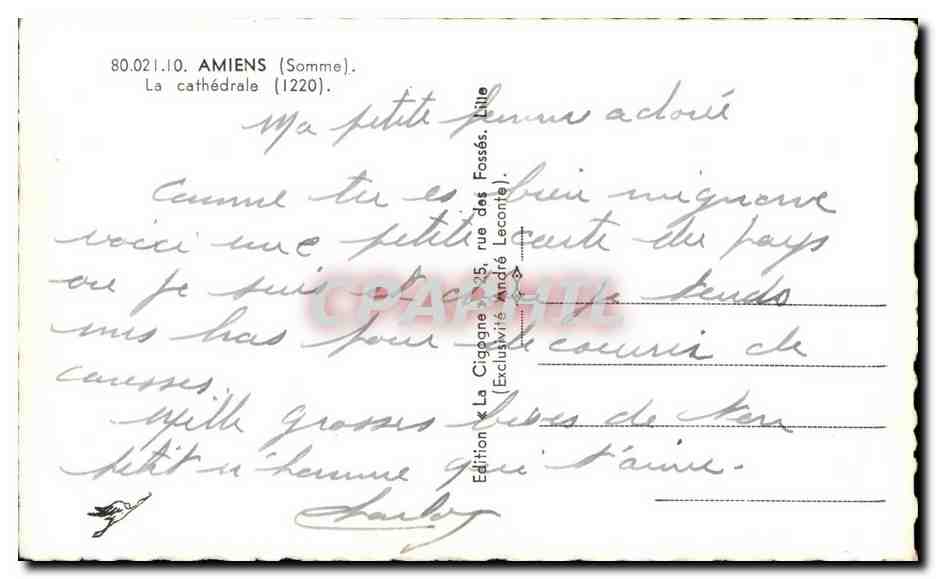 80.021.10. AMIENS (Somme).
La cathédrale (1220).
Ma petite femme adorée
Comme tu es bien mignone
voici une petite carte du pays
ou je suis et où je tends
mes bas pour te couvrir de
caresses.
Mille grosses bises de ton
petit n'homme qui t'aime.
Charlot
Edition « La Cigogne » 25, rue des Fossés. Lille
(Exclusivité André Leconte).
CPAPHIL